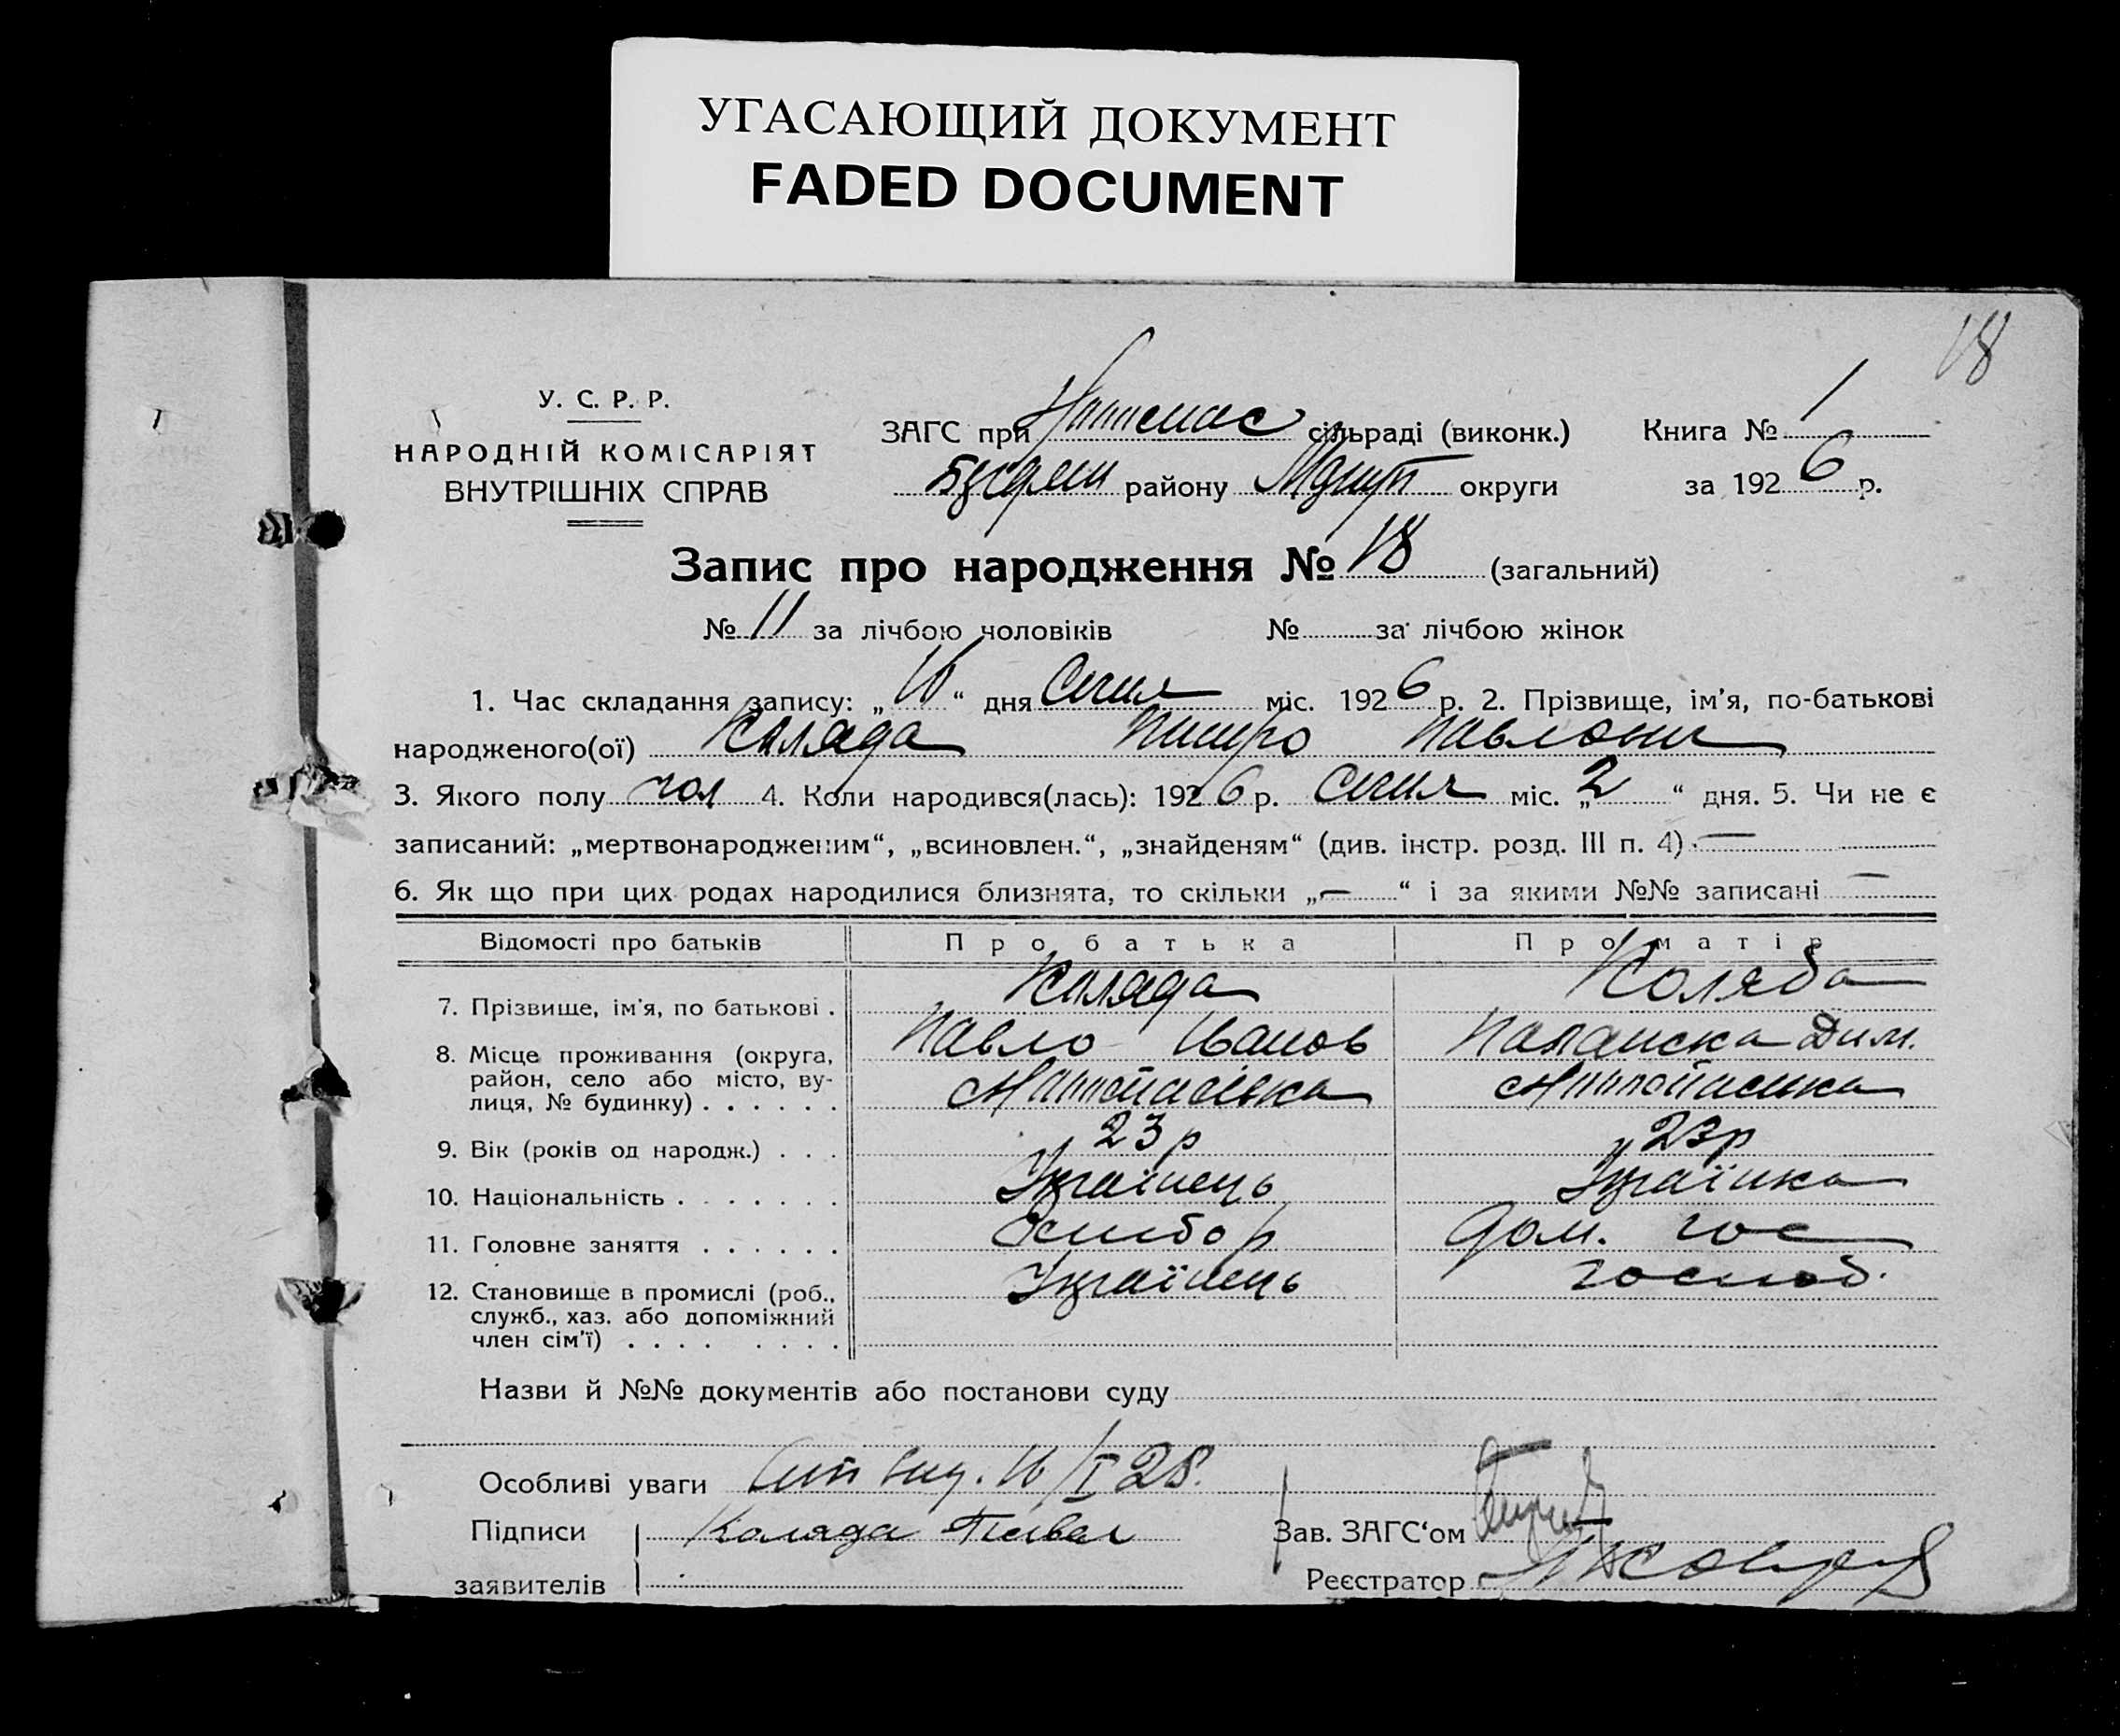 УГАСАЮЩИЙ ДОКУМЕНТ
FADED DOCUMENT
18
У. С. Р. Р.
НАРОДНІЙ КОМІСАРІЯТ
ВНУТРІШНІХ СПРАВ
ЗАГС при сільраді (виконк.)
району округи
Книга № 1
за 1926 р.
Запис про народження № 18 (загальний)
№ 11 за лічбою чоловіків № за лічбою жінок
1. Час складання запису: „16“ дня Січня міс. 1926 р. 2. Прізвище, ім'я, по-батькові
народженого(ої) Коляда Павлови
3. Якого полу чол 4. Коли народився(лась): 1926 р. Січня міс. „2“ дня. 5. Чи не є
записаний: „мертвонародженим“, „всиновлен.“, „знайденям“ (див. інстр. розд. III п. 4) —
6. Як що при цих родах народилися близнята, то скільки „—“ і за якими №№ записані —
Відомості про батьків Про батька Про матір
7. Прізвище, ім'я, по батькові . Коляда Коляда
Павло Іванов Дим.
8. Місце проживання (округа,
район, село або місто, ву-
лиця, № будинку) . . . . . .
9. Вік (років од народж.) . . . 23 р 23 р
10. Національність . . . . . . . Українець Українка
11. Головне заняття . . . . . . Хлібор дом. гос
12. Становище в промислі (роб.,
служб., хаз. або допоміжний
член сім'ї) . . . . . . . . Українець господ.
Назви й №№ документів або постанови суду
Особливі уваги вид. 16/I 28.
Підписи Коляда Павел
заявителів
Зав. ЗАГС'ом
Реєстратор